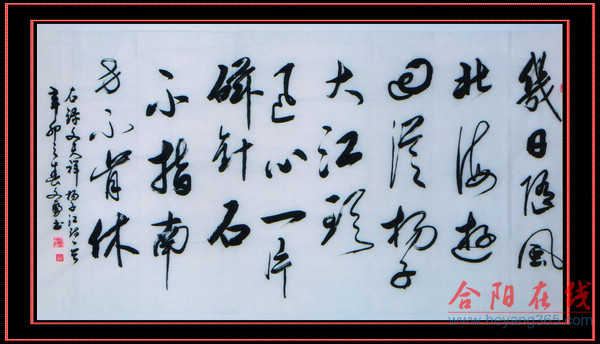 幾日随風
北海遊
回從杨子
大江頭
臣心一片
磁针石
不指南
方不肯休
右録文天祥杨子江诗一首
辛卯之春文书
合阳在线
www.heyang365.com